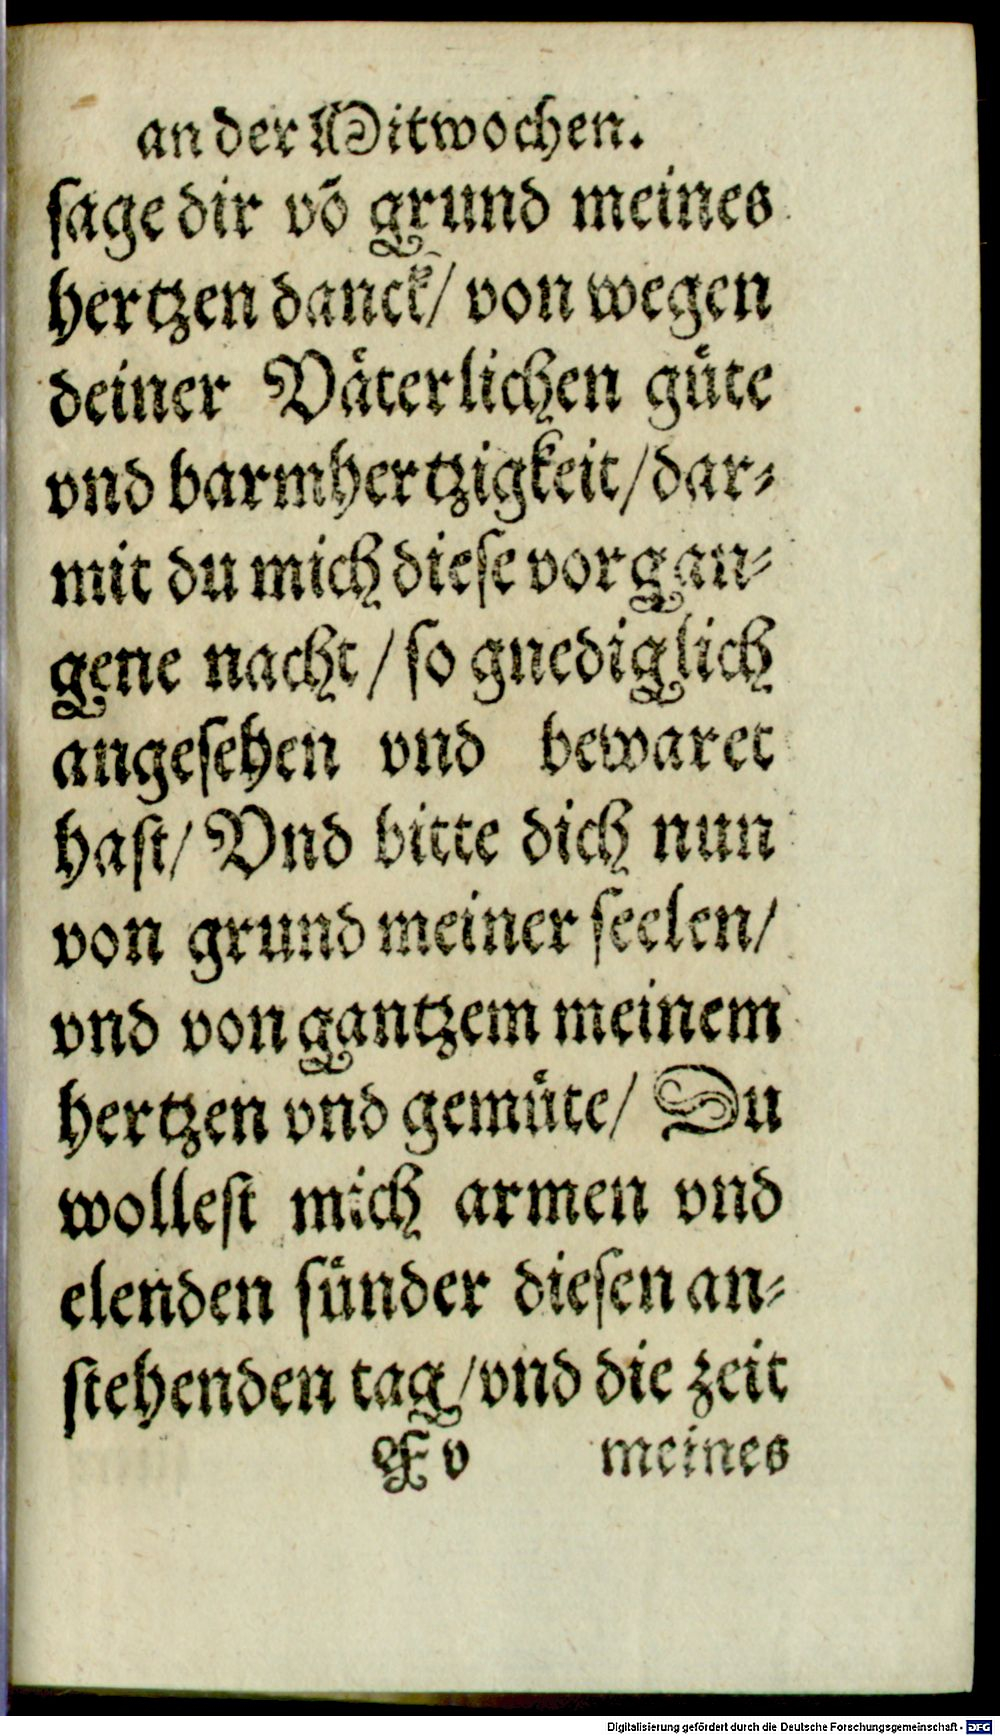 an der Mitwochen.
ſage dir võ grund meines
hertzen danck/ von wegen
deiner Vaͤterlichen guͤte
vnd barmhertzigkeit/ dar⸗
mit du mich dieſe vorgan⸗
gene nacht / ſo gnediglich
angeſehen vnd bewaret
haſt/ Vnd bitte dich nun
von grund meiner ſeelen/
vnd von gantzem meinem
hertzen vnd gemuͤte/ Du
wolleſt mich armen vnd
elenden ſuͤnder dieſen an⸗
ſtehenden tag/ vnd die zeit
E v meines
Digitalisierung gefördert durch die Deutsche Forschungsgemeinschaft - DFG